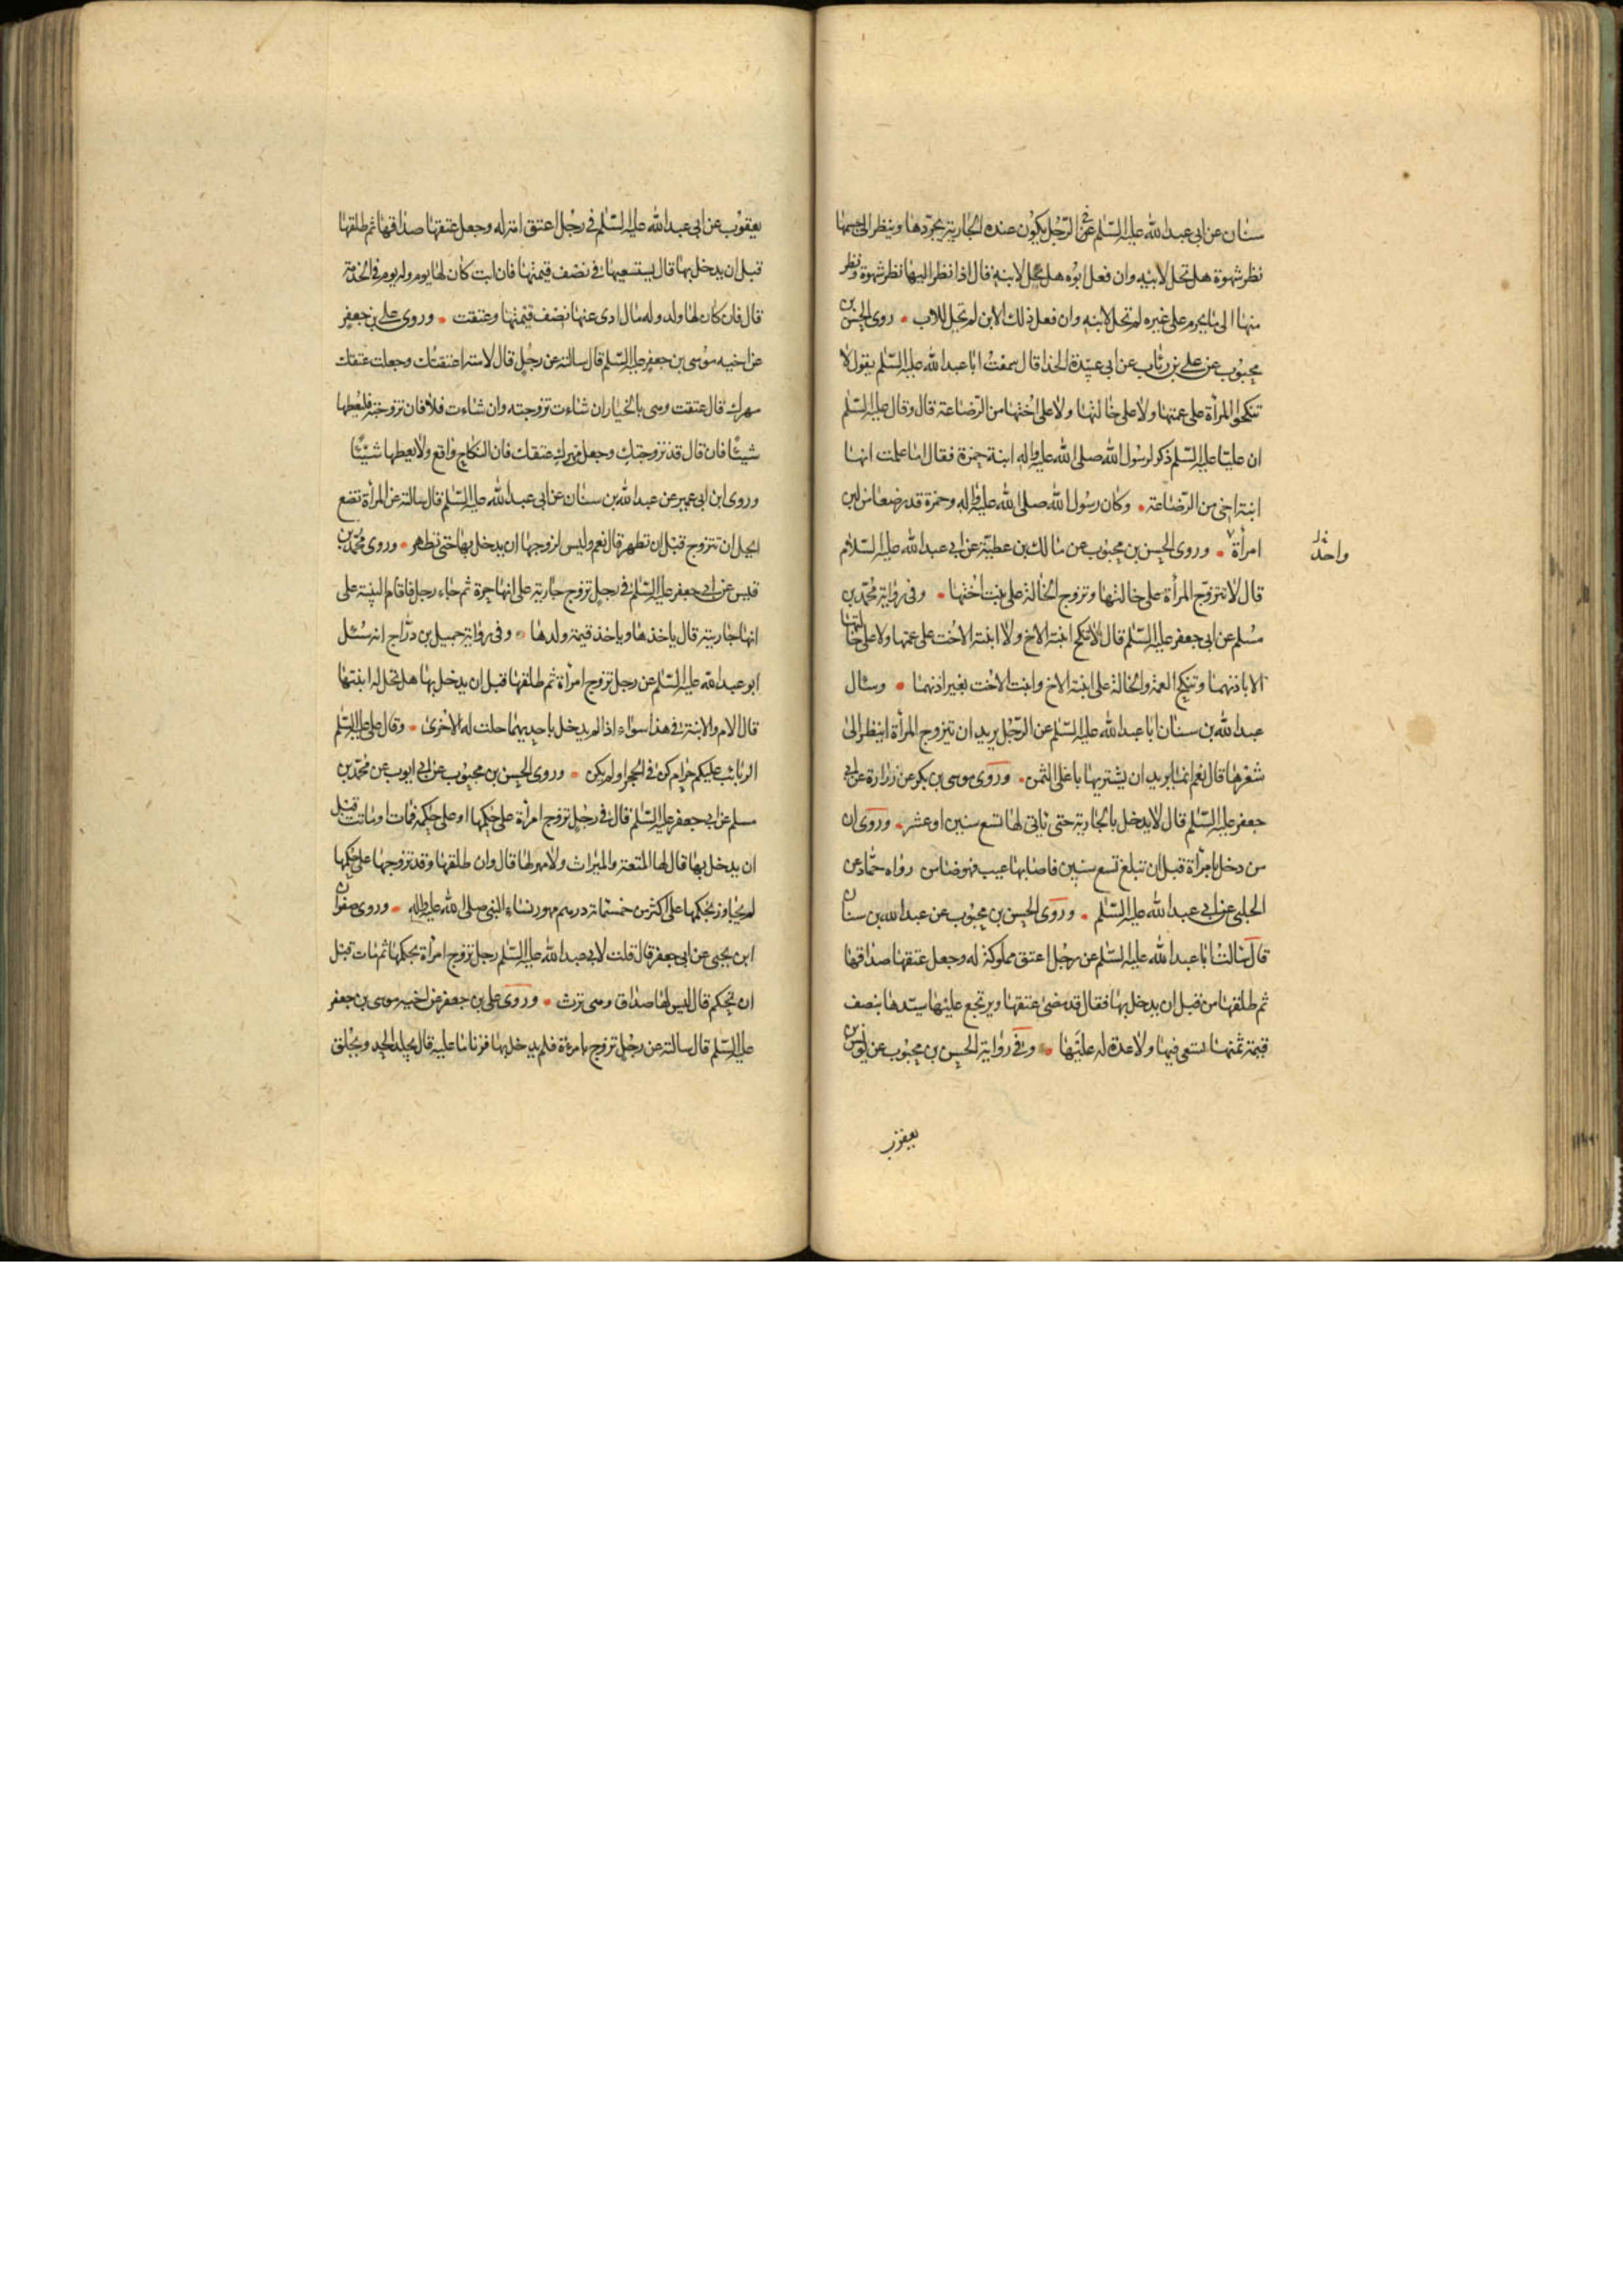 سنان عن ابى عبد الله عليه السّلم فى الرّجل يكون عنده الجارية يجرّدها وينظر الى جسمها
نظر شهوة هل تحل لابيه وان فعل ابوه هل تحل لابنه قال اذا نظر اليها نظر شهوة ونظر
منها الى ما يحرم على غيره لم تحل لابنه وان فعل ذلك الابن لم تحل للاب روى الحسن بن
محبوب عن على بن رئاب عن ابى عبيدة الحذا قال سمعت ابا عبد الله عليه السّلم يقول لا
تنكحوا المرأة على عمتها ولا على خالتها ولا على اختها من الرّضاعة قال وقال عليه السّلم
ان عليّا عليه السّلم ذكر لرسول الله صلى الله عليه واله ابنة حمزة فقال اما علمت انها
ابنة اخى من الرّضاعة وكان رسول الله صلى الله عليه واله وحمزة قد رضعا من لبن
امرأة وروى الحسن بن محبوب عن مالك بن عطيّة عن ابى عبد الله عليه السّلام
واحدة
قال لا تتزوّج المرأة على خالتها وتزوج الخالة على بنت اختها وفى رواية محمّد بن
مسلم عن ابى جعفر عليه السّلم قال لا تنكح ابنة الاخ ولا ابنة الاخت على عمتها ولا على خالتها
الا باذنهما وتنكح العمة والخالة على ابنة الاخ وابنت الاخت بغير اذنهما وسئال
عبد الله بن سنان ابا عبد الله عليه السّلم عن الرّجل يريد ان يتزوج المرأة اينظر الى
شعرها قال نعم انما يريد ان يشتريها باغلى الثمن وروى موسى بن بكر عن زرارة عن ابى
جعفر عليه السّلم قال لا يدخل بالجارية حتى ياتى لها تسع سنين او عشر وروى ان
من دخل بامرأة قبل ان تبلغ تسع سنين فاصابها عيب فهو ضامن رواه حمّاد عن
الحلبى عن ابى عبد الله عليه السّلم وروى الحسن بن محبوب عن عبد الله بن سنان
قال سالت ابا عبد الله عليه السّلم عن رجل اعتق مملوكة له وجعل عتقها صداقها
ثم طلقها من قبل ان يدخل بها فقال قد مضى عتقها ويرتجع عليها سيّدها بنصف
قيمة ثمنها تسعى فيها ولا عدة له عليها وفى رواية الحسن بن محبوب عن يونس بن
يعقوب
يعقوب عن ابى عبد الله عليه السّلم فى رجل اعتق امة له وجعل عتقها صداقها ثم طلقها
قبل ان يدخل بها قال يستسعيها فى نصف قيمتها فان ابت كان لها يوم وله يوم فى الخدمة
قال فان كان لها ولد وله مال ادى عنها نصف قيمتها وعتقت وروى على بن جعفر
عن اخيه موسى بن جعفر عليه السّلم قال سالته عن رجل قال لامته اعتقتك وجعلت عتقك
مهرك قال عتقت وهى بالخيار ان شاءت تزوجته وان شاءت فلا فان تزوجته فليعطها
شيئًا فان قال قد تزوجتك وجعل مهرك عتقك فان النكاح واقع ولا يعطها شيئًا
وروى ابن ابى عمير عن عبد الله بن سنان عن ابى عبد الله عليه السّلم قال سالته عن المرأة تضع
ايحل ان تتزوج قبل ان تطهر قال نعم وليس لزوجها ان يدخل بها حتى تطهر وروى محمّد بن
قيس عن ابى جعفر عليه السّلم فى رجل تزوج جارية على انها حرة ثم جاء رجل فاقام البينة على
انها جاريته قال ياخذها وياخذ قيمة ولدها وفى رواية جميل بن درّاج انه سئل
ابو عبد الله عليه السّلم عن رجل تزوج امرأة ثم طلقها قبل ان يدخل بها هل تحل له ابنتها
قال الام والابنة فى هذا سواء اذا لم يدخل باحديهما حلت له الاخرى وقال على عليه السّلم
الربائب عليكم حرام كن فى الحجر او لم يكن وروى الحسن بن محبوب عن ابى ايوب عن محمّد بن
مسلم عن ابى جعفر عليه السّلم قال فى رجل تزوج امرأة على حكمها او على حكمه فمات او ماتت قبل
ان يدخل بها قال لها المتعة والميراث ولا مهر لها قال وان طلقها وقد تزوجها على حكمها
لم يتجاوز بحكمها على اكثر من خمسمائة درهم مهور نساء النبى صلى الله عليه واله وروى صفوان
ابن يحيى عن ابى جعفر قال قلت لابى عبد الله عليه السّلم رجل تزوج امرأة بحكمها ثم مات قبل
ان تحكم قال ليس لها صداق وهى ترث وروى على بن جعفر عن اخيه موسى بن جعفر
عليه السّلم قال سالته عن رجل تزوج بامرءة فلم يدخل بها فزنا ما عليه قال يجلد الحد ويحلق